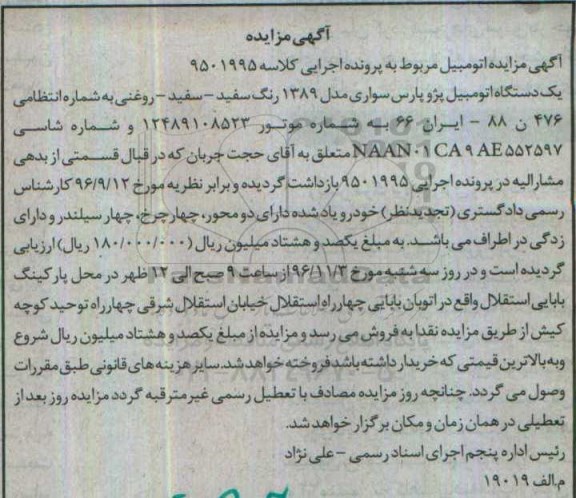 آگهی مزایده
آگهی مزایده اتومبیل مربوط به پرونده اجرایی کلاسه ۹۵۰۱۹۹۵
یک دستگاه اتومبیل پژو پارس سواری مدل ۱۳۸۹ رنگ سفید – سفید – روغنی به شماره انتظامی
۴۷۶ ن ۸۸ – ایران ۶۶ به شماره موتور ۱۲۴۸۹۱۰۸۵۲۳ و شماره شاسی
NAAN۰۱CA۹AE۵۵۲۵۹۷ متعلق به آقای حجت جربان که در قبال قسمتی از بدهی
مشارالیه در پرونده اجرایی ۹۵۰۱۹۹۵ بازداشت گردیده و برابر نظریه مورخ ۹۶/۹/۱۲ کارشناس
رسمی دادگستری (تجدیدنظر) خودرو یاد شده دارای دو محور، چهار چرخ، چهار سیلندر و دارای
زدگی در اطراف می باشد. به مبلغ یکصد و هشتاد میلیون ریال (۱۸۰/۰۰۰/۰۰۰ ریال) ارزیابی
گردیده است و در روز سه شنبه مورخ ۹۶/۱۱/۳ از ساعت ۹ صبح الی ۱۲ ظهر در محل پارکینگ
بابایی استقلال واقع در اتوبان بابایی چهارراه استقلال خیابان استقلال شرقی چهارراه توحید کوچه
کیش از طریق مزایده نقدا به فروش می رسد و مزایده از مبلغ یکصد و هشتاد میلیون ریال شروع
و به بالاترین قیمتی که خریدار داشته باشد فروخته خواهد شد. سایر هزینه های قانونی طبق مقررات
وصول می گردد. چنانچه روز مزایده مصادف با تعطیل رسمی غیر مترقبه گردد مزایده روز بعد از
تعطیلی در همان زمان و مکان برگزار خواهد شد.
رئیس اداره پنجم اجرای اسناد رسمی – علی نژاد
م.الف ۱۹۰۱۹